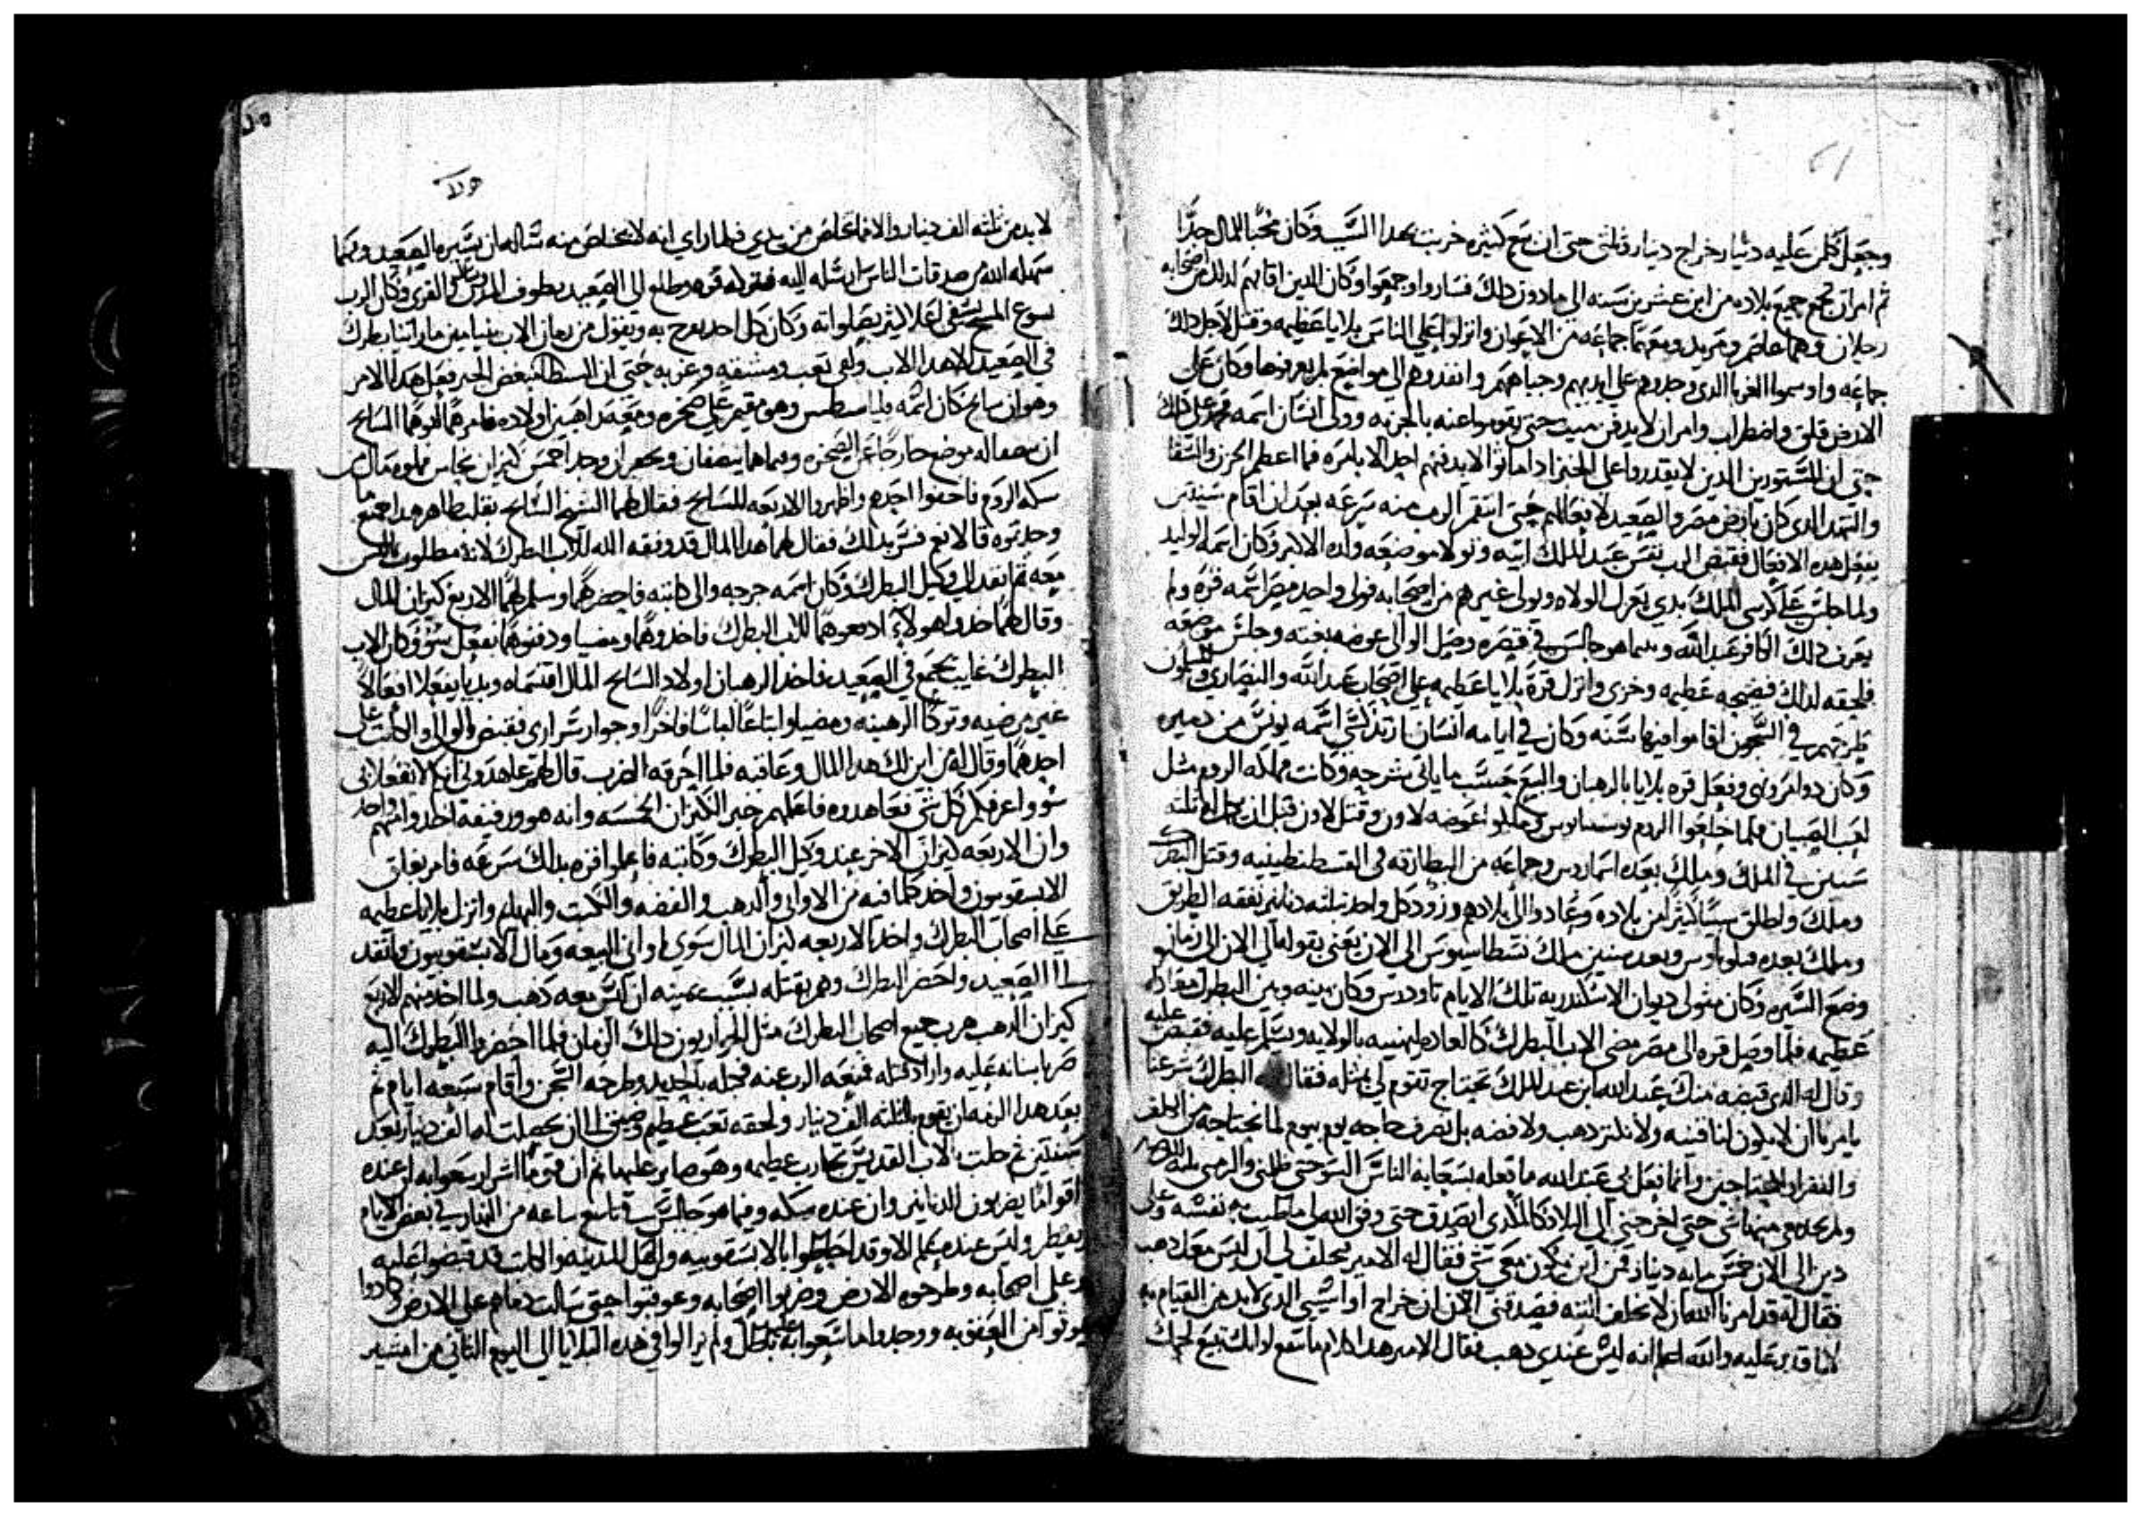 وجعل كلمن عليه دينار خراج دينار وثلثي حتى ان بيع كثيره خربت بهدا السبب وكان محبا للمال جدا
ثم امر ان تجمع جميع بلاده من ابن عشرين سنه الى مادون دلك فساروا وجمعوا وكان الدين اقامهم لدلك من اصحابه
رجلان وهما عاصم ويزيد ومعهما جماعه من الاعوان وانزلوا على الناس بلايا عظيمه وقتل لاجل دلك
جماعه واوسموا الغربا الدى وجدوهم على ايديهم وجباههم وانفدوهم الى مواضع لم يعرفوها وكان على
الارض قلق واضطراب وامر ان لا يدفن ميت حتى يقوموا عنه بالجزيه وولى انسان اسمه محمد على دلك
حتى ان المستورين الدين لا يقدروا على الخبز ادا ماتوا لا يدفنهم احد الا بامره فما اعظم الحزن والشقا
والتنهد الدى كان بارض مصر والصعيد لافعالهم حتى انتقم الرب منه سرعه بعد ان اقام سنتين
يفعل هده الافعال فقبض الرب نفس عبد الملك ابيه وتولا موضعه ولده الاكبر وكان اسمه الوليد
ولما جلس على كرسى الملك بدى يعزل الولاه ويولى غيرهم من اصحابه فولى واحد مصر اسمه قره ولم
يعرف دلك الكافر عبد الله وبينما هو جالس في قصره وصل الوالى عوضه بغته وجلس موضعه
فلحقه لدلك فضيحه عظيمه وخزى وانزل قرة بلايا عظيمه على اصحاب عبد الله والنصارى والمسلمون
طرحهم في السجون اقاموا فيها سنه وكان في ايامه انسان ارتدكسى اسمه يونس من دميره
وكان دوامر ونهى وفعل قره بلايا بالرهبان والبيع حسب ما ياتى شرحه وكانت مملكه الروم مثل
لعب الصبيان فلما خلعوا الروم
سنين في الملك وملك بعده وجماعه من البطارقه فى القسطنطينيه وقتل
وملك واطلق سبيا كثيرا من بلاده وعادوا الى بلادهم وزود كل واحد ثلثه دنانير نفقه الطريق
وملك بعده وبعد سنتين ملك الى الان يعنى بقوله الى الان الى زمان
وضع السيره وكان متولى ديوان الاسكندريه تلك الايام تاودرس وكان بينه وبين البطرك معاداه
عظيمه فلما وصل قره الى مصر مضى الاب البطرك كالعاده ليهنيه بالولايه ويسلم عليه فقبض عليه
وقال له الدى قبضه منك عبد الله ابن عبد الملك تحتاج تقوم لى بمثله فقال له البطرك شرعنا
يامرنا ان لا يكون لنا قنيه ولا نكنز دهب ولا فضه بل نصرف حاجه يوم بيوم لما نحتاجه من
والفقرا والمحتاجين وانما فعل بى عبد الله ما فعله بسعايه الناس السو حتى ظلمنى والزمنى
ولم يجد معى منها شى حتى اخرجنى الى البلاد كالمكدى اتصدق حتى وفق الله لى ما طيبت به نفسه وعلى
دين الى الان خمس مايه دينار فمن اين يكون معى شى فقال له الامير تحلف لى ان ليس معك دهب
فقال له قد امرنا الله ان لا نحلف البته فصدقنى الان ان خراج اواسيى الدى لابد من القيام به
لا ما قدر عليه والله اعلم انه ليس عندى دهب فقال الامير هدا كلام ما ينفع لو انك تبيع لحمك
لابد من ثلثه الف دينار والا فما تخلص من يدي فلما راي انه لا يتخلص منه سأله ان يسيره الصعيد ومهما
سهله الله من صدقات الناس ارسله اليه فتركه قره وطلع الى الصعيد يطوف المدن والقرى وكان الرب
يسوع المسيح يشفى اعلا كثير بصلواته وكان كل احد يفرح به ويقول من زمان الاب بنيامين ما راينا بطرك
فى الصعيد الا هدا الاب ولقى تعب ومشقه وغربه حتى ان الشيطان المبغض الخير فعل هدا الامر
وهو ان سايح كان اسمه وهو مقيم على صخره ومعه راهبين اولاده فامرهما ابوهما السايح
ان يحفرا له موضع خارجا عن الصخره وفيما هما ينضفان ويحفران وجدا خمس كيزان نحاس مملوه مال من
سكه الروم فاخفوا احدهم واظهروا الاربعه للسايح فقال لهما الشيخ السايح بقلب طاهر هدا جميع ما
وجدتموه قالا نعم فسر بدلك فقال لهما هدا المال قد وفقه الله للاب البطرك لانه مطلوب بما ليس
معه ثم انفد الى وكيل البطرك وكان اسمه جرجه والى كاتبه فاحضرهما وسلم لهما الاربع كيزان المال
وقال لهما خدوا هولاء ادفعوهما للاب البطرك فاخدوهما ومضيا ودفنوهما بفعل سو وكان الاب
البطرك غايب بجمع في الصعيد فاخد الرهبان اولاد السايح المال اقتسماه وبديا يفعلا افعالا
غير مرضيه وتركا الرهبنه ومضيا وابتاعا لباسا فاخرا وجوار سرارى فقبض الوالى والكاتب على
احدهما وقال له من اين لك هدا المال وعاقبه فلما احرقه الضرب قال لهم عاهدونى انكم لا تفعلوا بى
سو واعرفكم كل شى فعاهدوه فاعلمهم خبر الكيزان الخمسه وانه هو ورفيقه اخدوا منهم واحد
وان الاربعه كيزان الاخر عند وكيل البطرك وكاتبه فاعلموا قره بدلك سرعه فامر بغلق
الابسقوبيون واخد كلما فيه من الاوانى والدهب والفضه والكتب والبهايم وانزل بلايا عظيمه
على اصحاب البطرك واخد الاربعه كيزان المال سوى اوانى البيعه ومال الابسقوبيون وانفد
الى الصعيد واحضر البطرك وهم بقتله بسبب يمينه ان ليس معه دهب ولما اخد منهم الاربع
كيزان الدهب هرب جميع اصحاب البطرك مثل الحواريون دلك الزمان فلما احضروا البطرك اليه
صر باسنانه عليه واراد قتله فمنعه الرب عنه فجله بالحديد وطرحه السجن واقام سبعه ايام ثم
بعد هدا الزمه ان يقوم بالثلثه الف دينار ولحقه تعب عظيم وضيق الى ان تحصلت له الف دينار بعد
سنتين ثم حلت بالاب القديس تجارب عظيمه وهو صابر عليها ثم ان قوما اشرار سعوا به ان عنده
اقواما يضربون الدنانير وان عنده سكه وفيما هو جالس في تاسع ساعه من النهار في بعض الايام
يفطر وليس عنده علم الا وقد احاطوا بالابسقوبيه واهل المدينه والكاتب قد قبضوا عليه
وعلى اصحابه وطرحوه الارض وضربوا اصحابه وعوقبوا حتى سالت دماهم على الارض وكادوا
يموتوا من العقوبه ووجدوا ما سعوا به عليه باطل ولم يزالوا في هده البلايا الى اليوم الثاني من امشير